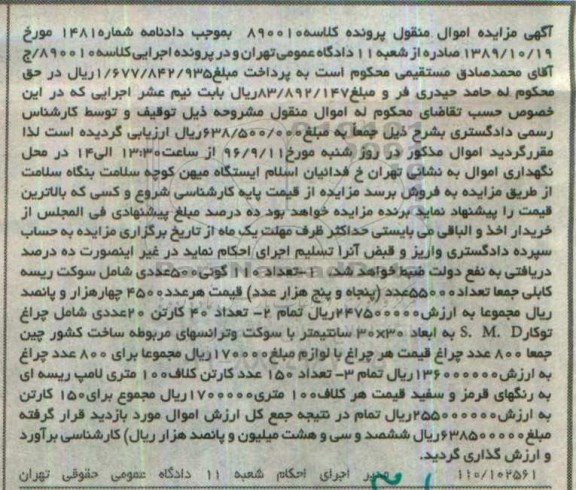 آگهی مزایده اموال منقول پرونده کلاسه۸۹۰۰۱۰ بموجب دادنامه شماره۱۴۸۱ مورخ
۱۳۸۹/۱۰/۱۹ صادره از شعبه ۱۱ دادگاه عمومی تهران و در پرونده اجرایی کلاسه۸۹۰۰۱۰/ج
آقای محمدصادق مستقیمی محکوم است به پرداخت مبلغ۱/۶۷۷/۸۴۲/۹۳۵ریال در حق
محکوم له حامد حیدری فر و مبلغ۸۳/۸۹۲/۱۴۷ریال بابت نیم عشر اجرایی که در این
خصوص حسب تقاضای محکوم له اموال منقول مشروحه ذیل توقیف و توسط کارشناس
رسمی دادگستری بشرح ذیل جمعا به مبلغ۶۳۸/۵۰۰/۰۰۰ریال ارزیابی گردیده است لذا
مقررگردید اموال مذکور در روز شنبه مورخ۹۶/۹/۱۱ از ساعت۱۳:۳۰ الی۱۴ در محل
نگهداری اموال به نشانی تهران خ فدائیان اسلام ایستگاه میهن کوچه سلامت بنگاه سلامت
از طریق مزایده به فروش برسد مزایده از قیمت پایه کارشناسی شروع و کسی که بالاترین
قیمت را پیشنهاد نماید برنده مزایده خواهد بود ده درصد مبلغ پیشنهادی فی المجلس از
خریدار اخذ و الباقی می بایستی حداکثر ظرف مهلت یک ماه از تاریخ برگزاری مزایده به حساب
سپرده دادگستری واریز و قبض آنرا تسلیم اجرای احکام نماید در غیر اینصورت ده درصد
دریافتی به نفع دولت ضبط خواهد شد. ۱-تعداد۱۱۰ گونی۵۰۰عددی شامل سوکت ریسه
کابلی جمعا تعداد۵۵۰۰۰عدد (پنجاه و پنج هزار عدد) قیمت هرعدد۴۵۰۰ چهارهزار و پانصد
ریال مجموعا به ارزش۲۴۷۵۰۰۰۰۰ریال تمام ۲- تعداد ۴۰ کارتن ۲۰عددی شامل چراغ
توکارS. M. D به ابعاد ۳۰×۳۰ سانتیمتر با سوکت وترانسهای مربوطه ساخت کشور چین
جمعا ۸۰۰ عدد چراغ قیمت هر چراغ با لوازم مبلغ۱۷۰۰۰۰ریال مجموعا برای ۸۰۰ عدد چراغ
به ارزش۱۳۶۰۰۰۰۰۰ریال تمام ۳- تعداد ۱۵۰ عدد کارتن کلاف۱۰۰ متری لامپ ریسه ای
به رنگهای قرمز و سفید قیمت هر کلاف۱۰۰ متری۱۷۰۰۰۰۰ریال مجموع برای۱۵۰ کارتن
به ارزش۲۵۵۰۰۰۰۰۰ریال تمام در نتیجه جمع کل ارزش اموال مورد بازدید قرار گرفته
مبلغ۶۳۸۵۰۰۰۰۰ریال ششصد و سی و هشت میلیون و پانصد هزار ریال) کارشناسی برآورد
و ارزش گذاری گردید.
۱۱۰/۱۰۲۵۶۱ مدیر اجرای احکام شعبه ۱۱ دادگاه عمومی حقوقی تهران